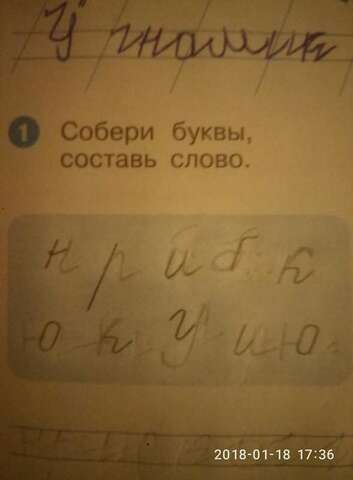 У гномик
1 Собери буквы,
составь слово.
н р и б к
о к У и ю
2018-01-18 17:36